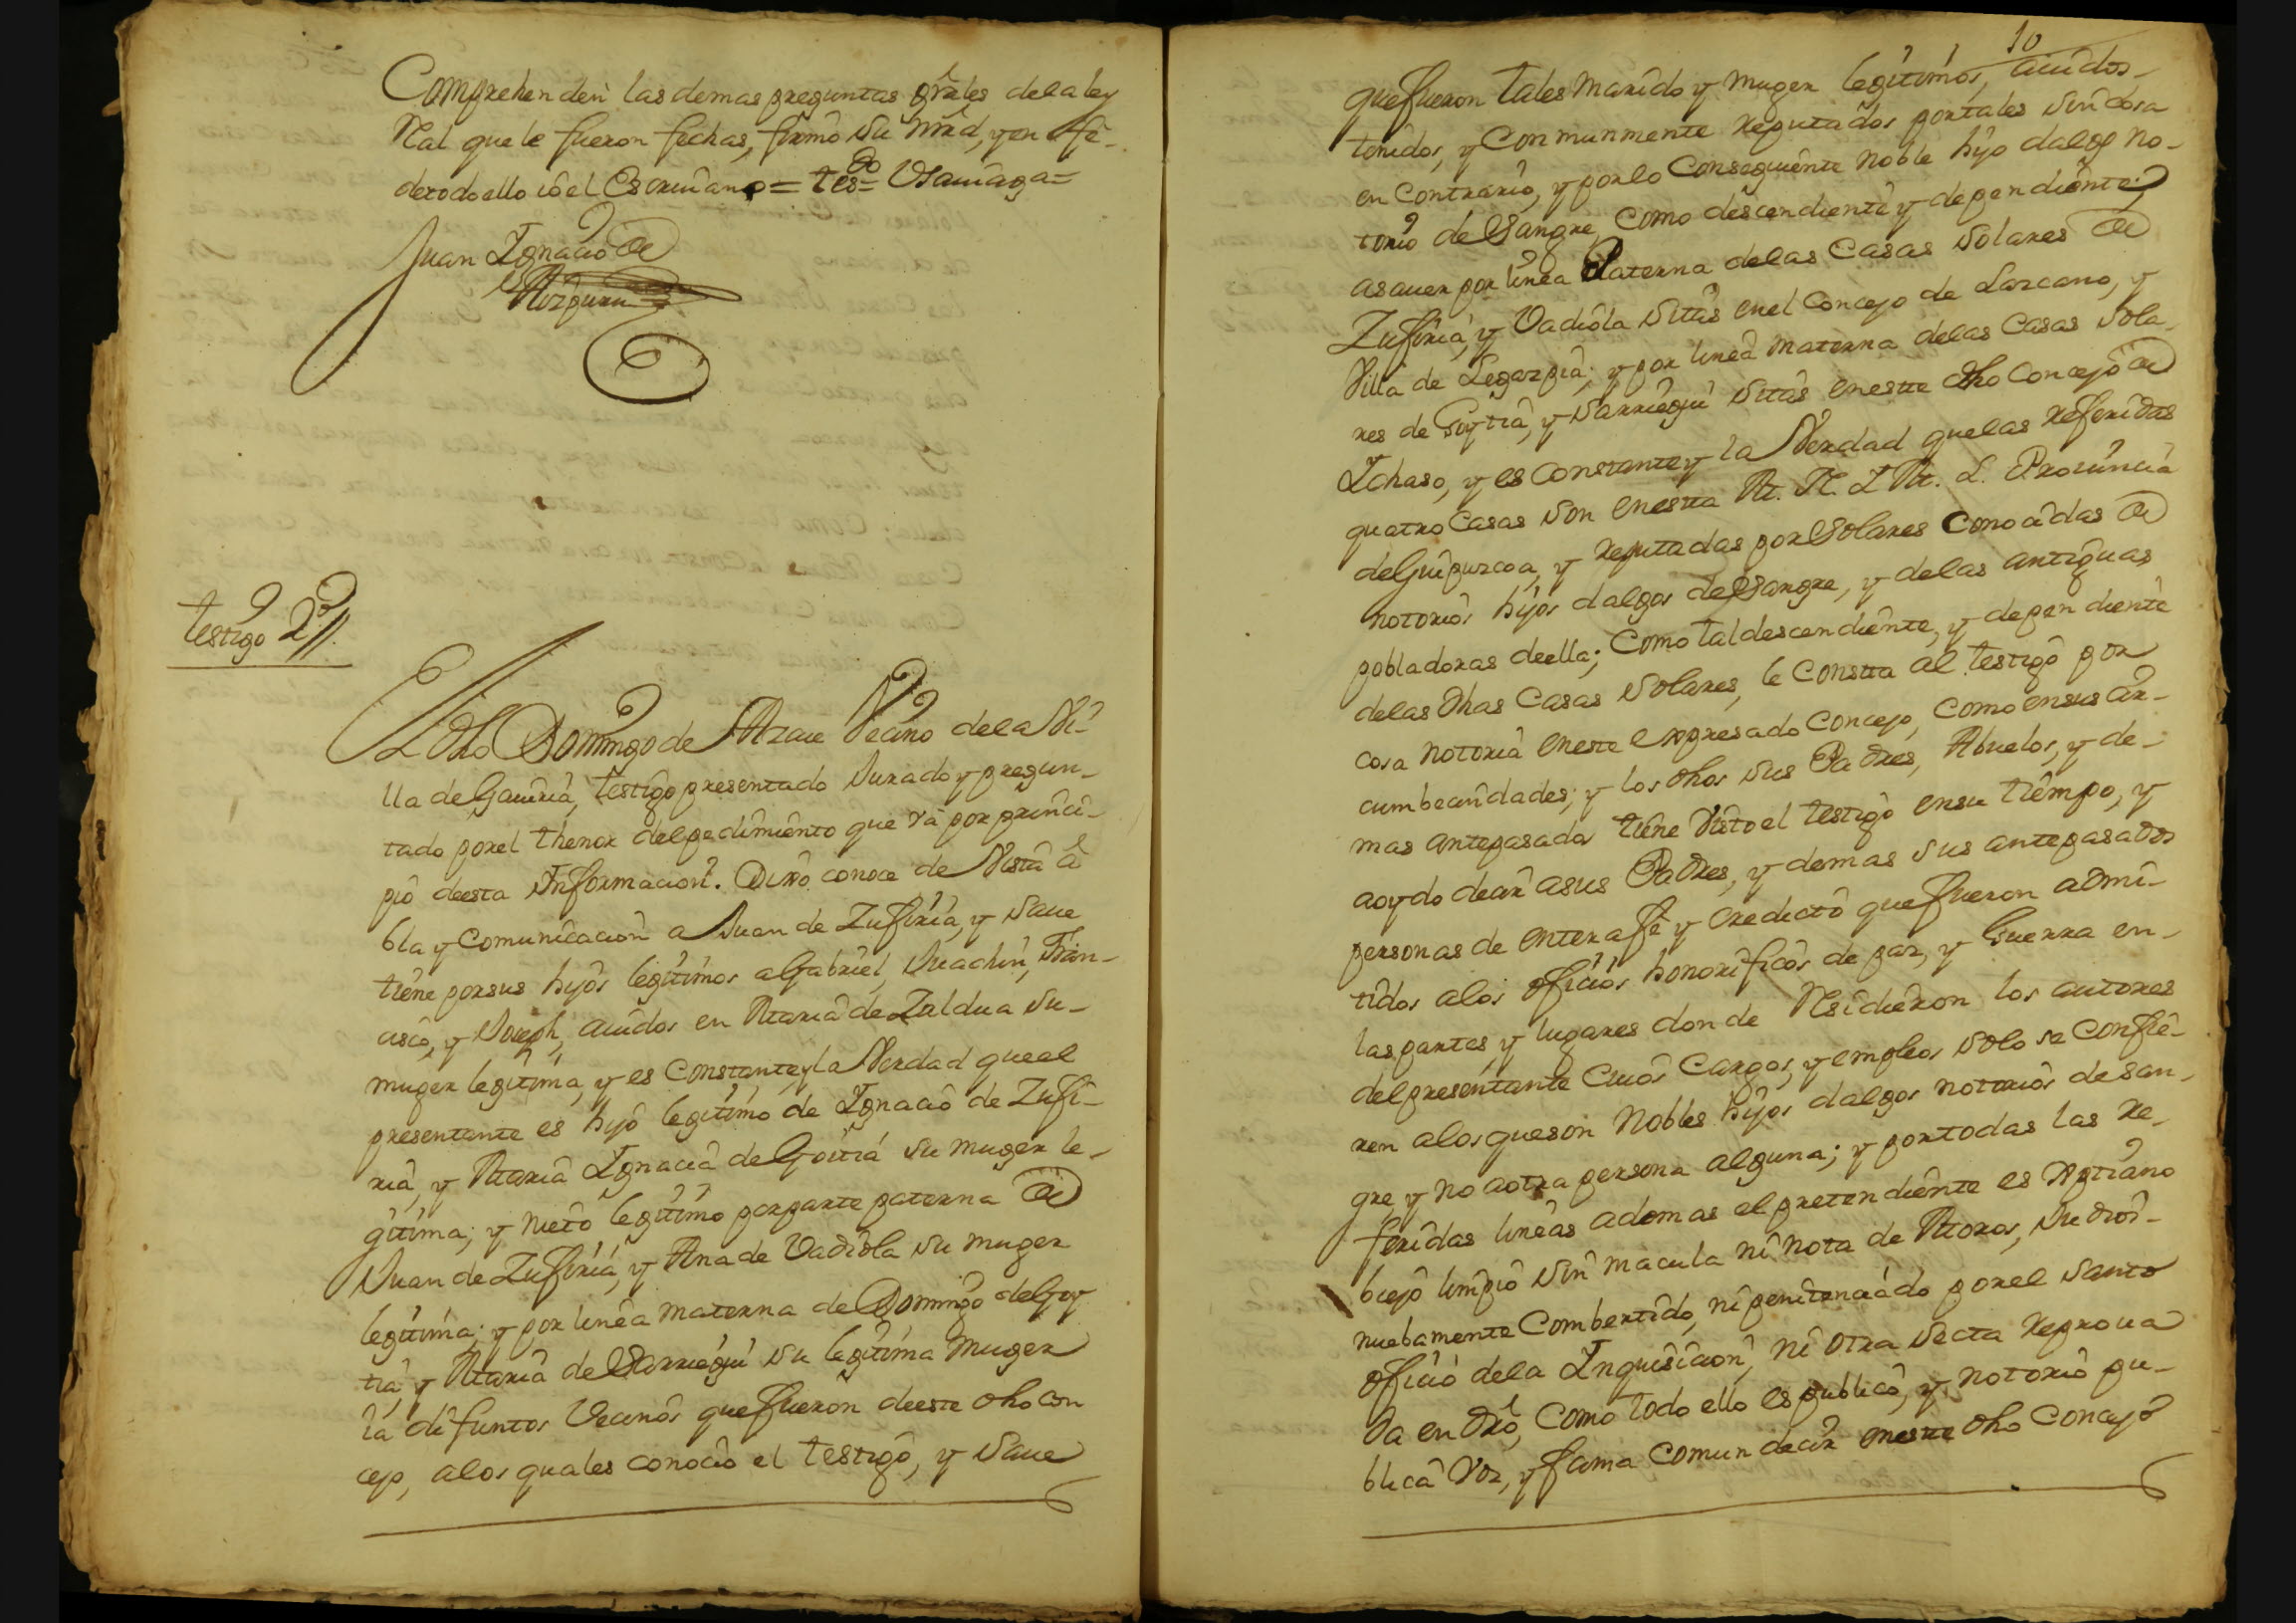 Comprehenden las demas preguntas grâles dela ley
Real que le fueron fechas, firmò su mrâd, y en fè
detodo ello iô el Escriuano = tesdo = Usauiaga =
Juan Ignacio de
Aizpuru
testigo 2º//.
El dho Domingo de Vecino dela Vi-
lla de Gauiria, testigo presentado Jurado y pregun-
tado por el thenor del pedimiento que và por princi-
pio deesta Informacion. Dixo conoce de Vista â
bla y Comunicacion a Juan de Zufiria, y Saue
tiene por sus hijos legitimos a Gabriel, Juachin, Fran-
cisco, y Joseph, auidos en Maria de Zaldua su
muger legitima, y es Constante y la Verdad que el
presentante es hijo legitimo de Ignacio de Zufi-
ria, y Maria Ignacia de Goitia su muger le-
gitima; y nieto legitimo por parte paterna de
Juan de Zufiria, y Ana de Vadiola su muger
legitima; y por linea materna de Domingo de Goy
tia, y Maria de Sarriegui su legitima Muger
ia difuntos Vecinos que fueron deeste dho con
cejo, alos quales conocio el testigo, y Saue
10
que fueron tales Marido y Muger legitimos, auidos
tenidos, y Conmunmente reputados por tales sin cosa
en Contrario, y por lo Conseguiente Noble hijo dalgo no-
torio de Sangre, Como descendiente y dependiente,
asauer por linea Paterna delas Casas Solares de
Zufiria, y Vadiola Sitas enel Concejo de Lazcano, y
Villa de Legazpia; y por linea Materna delas Casas Sola
res de Goytia, y Sarriegui Sitas eneste dho Concejo de
Ichaso, y es Constante y la Verdad quelas referidas
quatro Casas son enesta M. N. I M. L. Prouincia
de Guipuzcoa, y reputadas por Solares Conocidas de
notorios hijos dalgos de Sangre, y delas antiguas
pobladoras deella; Como tal descendiente, y dependiente
delas dhas Casas Solares, le Consta al testigo por
cosa notoria eneste expresado Concejo, como ensus cir-
cumbecindades; y los dhos sus Padres, Abuelos, y de-
mas antepasados tiene Visto el testigo ensu tiempo, y
aoydo decir asus Padres, y demas sus antepasados
personas de entera fè y credicto que fueron admi-
tidos alos oficios honorificos de paz, y Guerra en
las partes, y lugares donde Residieron los autores
del presentante Cuios Cargos, y empleos solo se Confie-
ren alos que son Nobles hijos dalgos notorios de san-
gre, y no aotra persona alguna; y por todas las re-
feridas lineas ademas el pretendiente es Xptiano
biejo limpio sin macula ni nota de Moros, Judios
nuebamente Combertido, ni penitenciado por el Santo
oficio dela Inquisicion, ni otra Secta reproua
da en drô, Como todo ello es publico, y notorio pu-
blica Voz, y fama Comun decir eneste dho Concejo